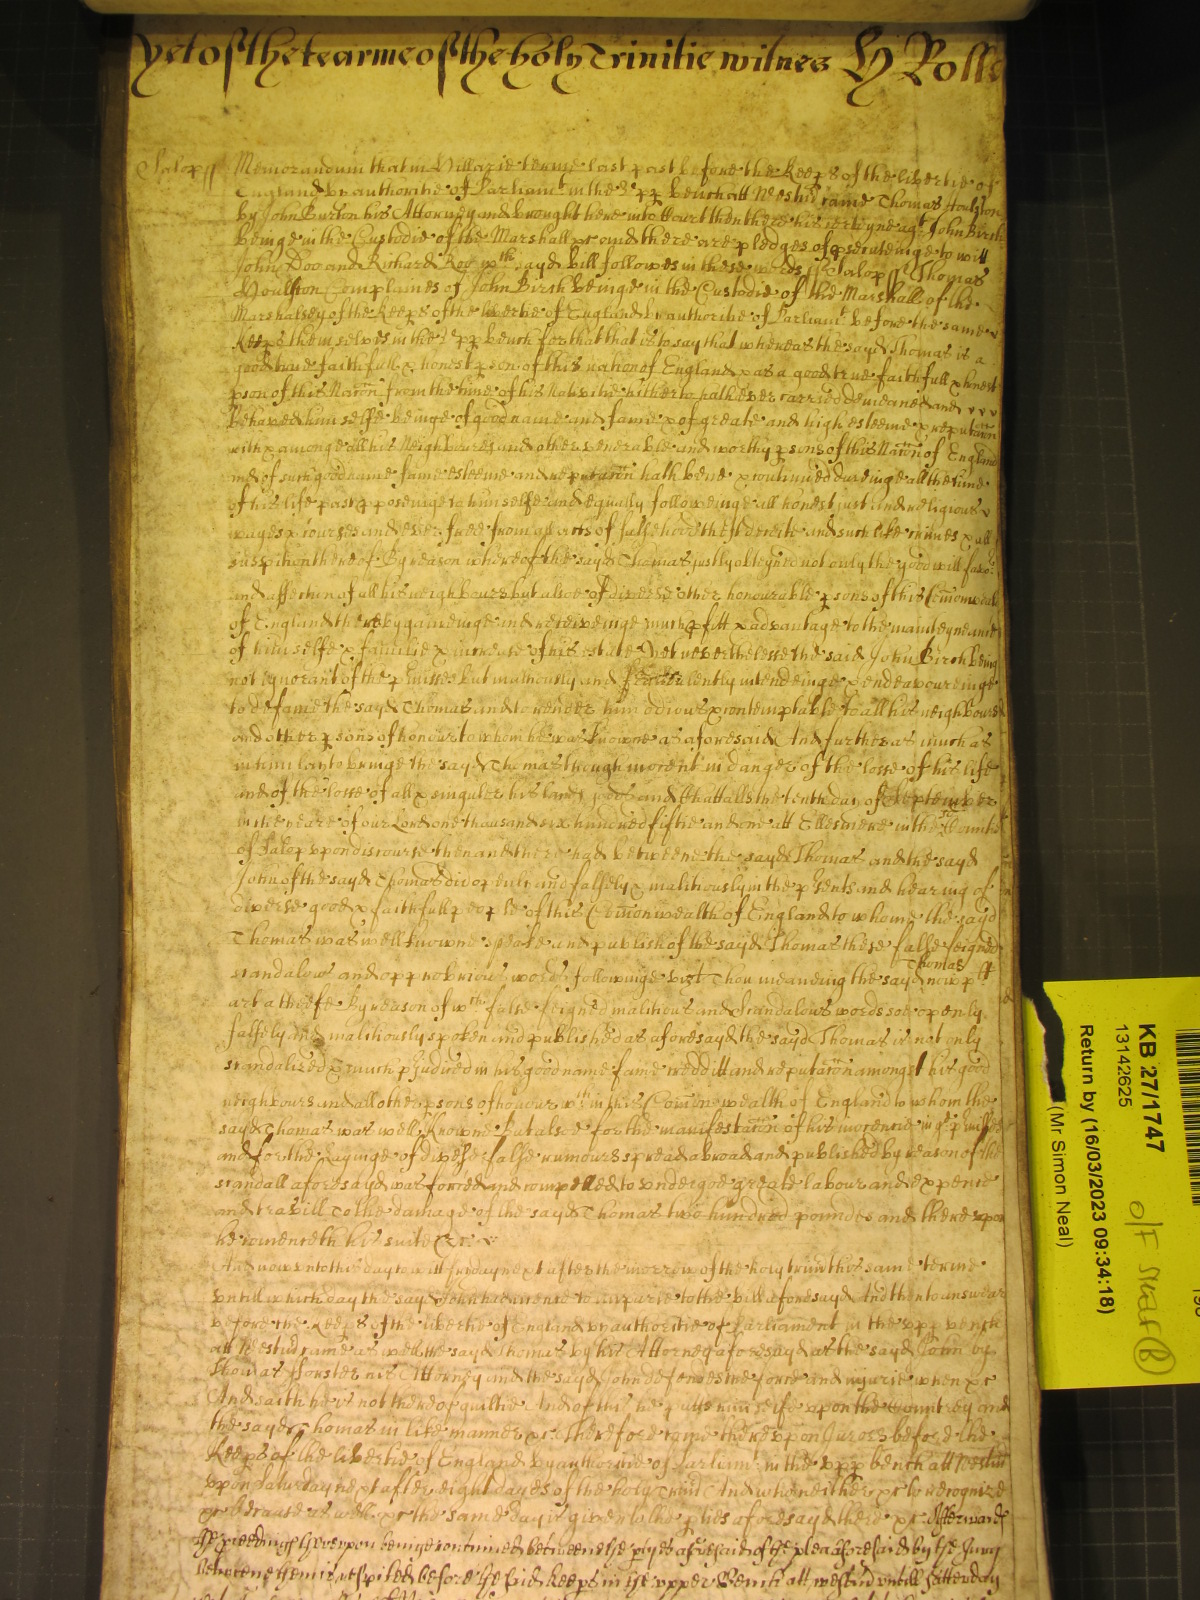 Yet of the tearme of the holy Trinitie witnes H Rolle
Salop ss Memorandum that in Hillarie terme last past before the Keeps of the libertie of
England by authoritie of Parliamt in the upp bench att Westm came Thomas Houlston
by John Burton his Attorney and brought here into Court then there his certeyne agt John Birch
beinge in the Custodie of the Marshall &c and there are pledges of psecuteinge to witt
John Doo and Richard Roo wch sayd bill followes in these words ss Salop ss Thomas
Houlston Complaines of John Birch beinge in the Custodie of the Marshall of the
Marshalsey of the Keeps of the libertie of England by authoritie of Parliamt before the same
Keeps themselves in the upp bench for that that is to say that whereas the sayd Thomas is a
good true faithfull & honest pson of this nation of England & as a good true faithfull & honest
pson of this Nacon from the time of his Nativitie hitherto hath ever carried demeaned and
Behaved himselfe beinge of good name and fame & of greate and high esteeme & reputacon
with & amonge all his Neighbours and other venerable and worthy psons of this Nacon of England
and of such good name fame esteeme and reputacon hath bene & continued dureinge all the time
of his life past pposeinge to himselfe and equally followeinge all honest just and religious
wayes & courses and ever free from all acts of falsehood theft deceite and such like crimes & all
suspition thereof By reason whereof the sayd Thomas justly obteyned not only the good will favor
and affection of all his neighbours but alsoe of diverse other honourable psons of this Comonwealth
of England thereby gaineinge and receiveinge much pfitt & advantage to the mainteyneance
of himselfe & familie & increase of his estate Yet neverthelesse the said John Birch being
not ignorant of the pmisses but maliciously and fraudulently intendeinge & endeavoureinge
to defame the sayd Thomas and to render him odious & contemptable to all his neighbours
and other psons of honour to whom he was knowne as aforesaid And further as much as
in him lay to bringe the sayd Thomas though inocent in danger of the losse of his life
and of the losse of all & singuler his lands goods and Chattalls the tenth day of September
in the yeare of our Lord one thousand six hundred fiftie and one att Ellesmere in the Countie
of Salop upon discourse then and there had betweene the sayd Thomas and the sayd
John of the sayd Thomas did openly and falsely & malitiously in the psents and hearing of
diverse good & faithfull people of this Comonwealth of England to whome the sayd
Thomas was well knowne speake and publish of the sayd Thomas these false feigned
scandalous and opprobrious words followinge vizt Thou meaneing the sayd Thomas now pltt
art a theefe By reason of wch false feigned malitious and Scandalous words soe openly
falsely and malitiously spoken and published as aforesayd the sayd Thomas is not only
scandalized & much pjudiced in his good name fame creditt and reputacon amongst his good
neighbours and all other psons of honour wthin this Comonwealth of England to whom the
sayd Thomas was well Knowne But alsoe for the manifestacon of his inocencie in ye pmisses
and for the layinge of diverse false rumours spread abroad and published by reason of the
scandall aforesayd was forced and compelled to undergoe greate labour and expence
and travill To the damage of the sayd Thomas two hundred pounds and thereupon
he comenceth his suite &c
And now untothis day to witt Fryday next after the morrow of the holy trinit this same terme
untill which day the sayd John had licence to imparle to the bill aforesayd And then to answear
before the Keeps of the libertie of England by authoritie of Parliament in the upp bench
att Westm came as well the sayd Thomas by his Attorney aforesayd as the sayd John by
Thomas fforster his Attorney and the sayd John defendes the force and injurie when &c
And saith he is not thereof guiltie And of this he putts himselfe upon the Countrey and
the sayd Thomas in like manner &c Therefore came thereupon Jurors before the
Keeps of the libertie of England by authoritie of Parliamt in the upp bench att Westm
upon Saturday next after eight dayes of the holy Trinit And who neither &c to recognize
&c because as well &c the same day is given to the pties aforesayd there &c Afterwards
the pceedings thereupon being continued betweene the ptyes aforesaid of the plea aforesaid by the Jury
betweene them is respited before the said Keeps in the upper Bench att Westm untill Satterday
KB 27/1747
13142625
Return by (16/03/2023 09:34:18)
(Mr Simon Neal)